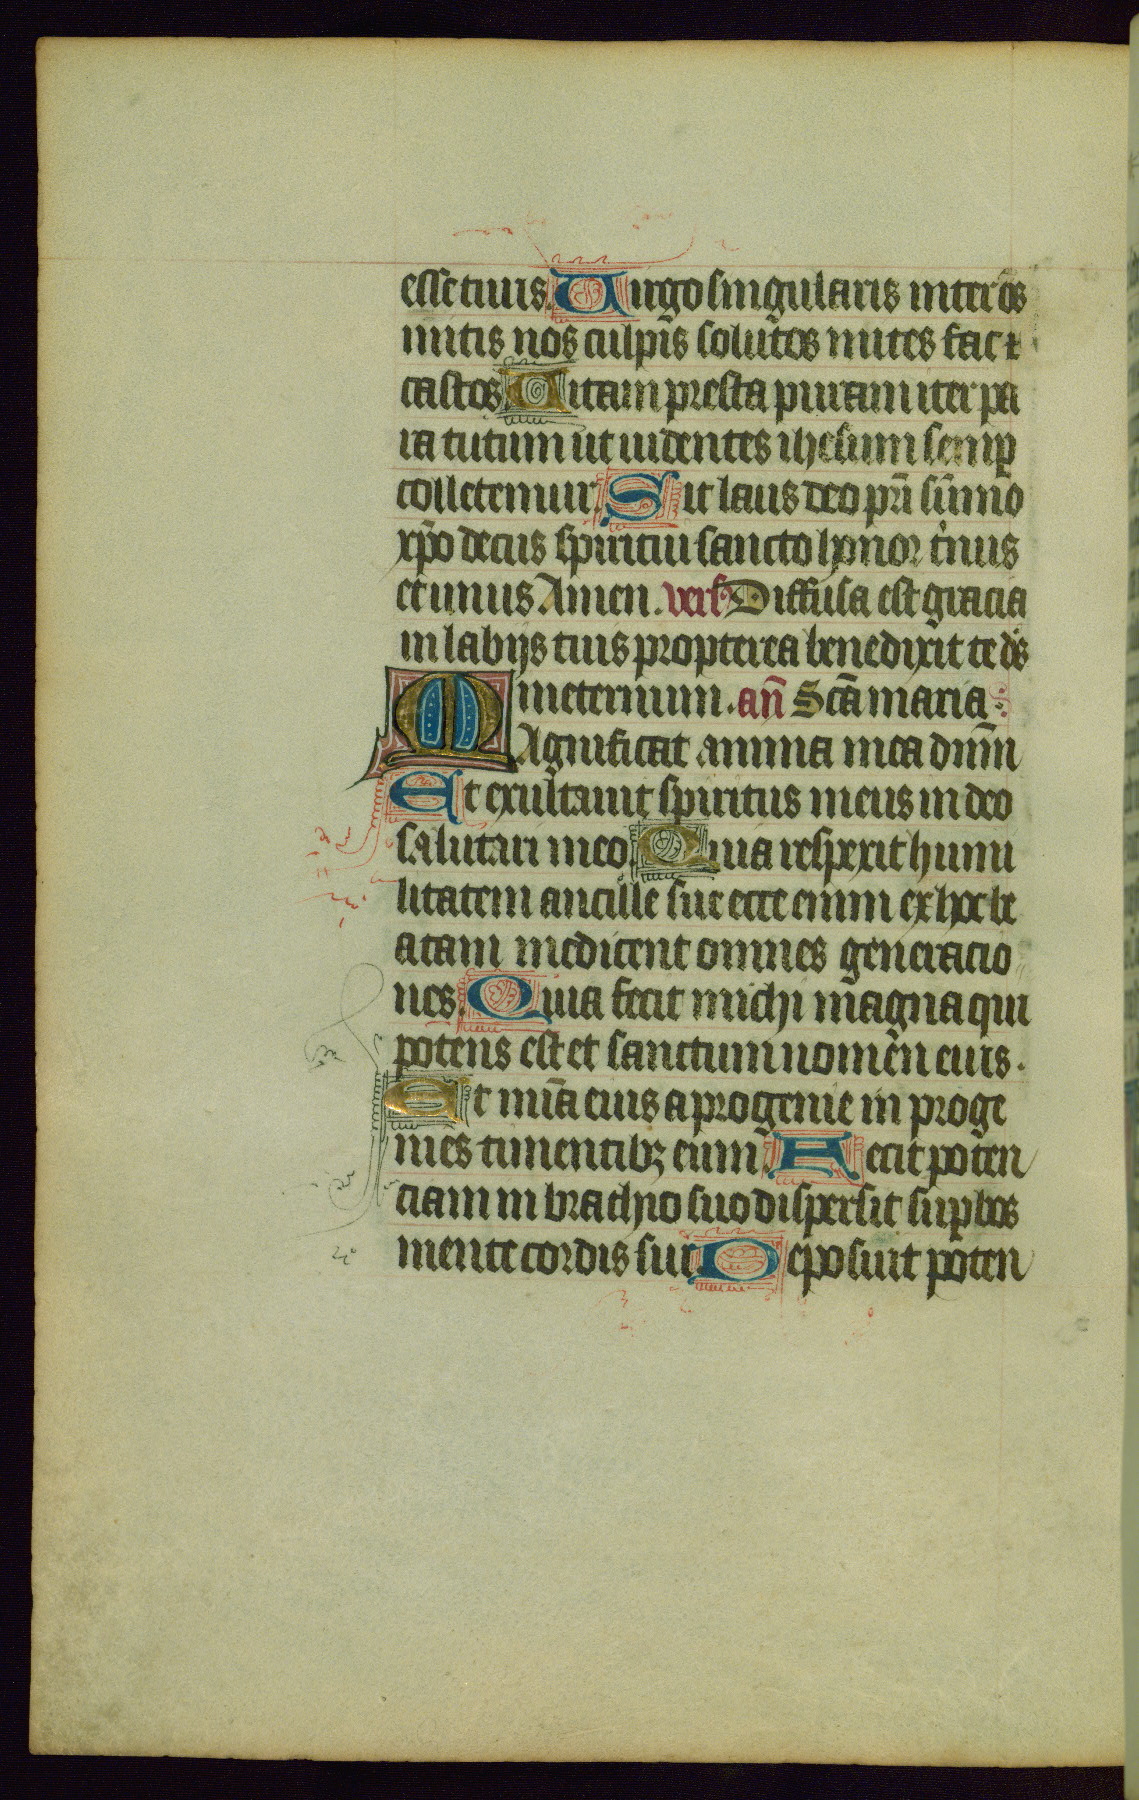 esse tuus. Uirgo singularis inter o͞s
mitis nos culpis solutos mites fac ⁊
castos Uitam presta puram iter pa
ra tutum ut uidentes ihesum semꝑ
colletemur. Sit laus deo pr̄i su͞mo
xp̄o decus spiritui sancto honor t'nus
et unus Amen. vers Diffusa est gracia
in labijs tuis propterea benedixit te d͞s
in eternum. an̄ Sc̄a maria
Magnificat anima mea dn̄m
Et exultauit spiritus meus in deo
salutari meo. Quia respexit humi
litatem ancille sue ecce enim ex hoc be
atam me dicent omnes generacio
nes. Quia fecit michi magna qui
potens est et sanctum nomen eius.
Et mīa eius a progenie in proge
nies timentibꝫ eum. Fecit poten
ciam in brachio suo dispersit suꝑbos
mente cordis sui. Deposuit poten